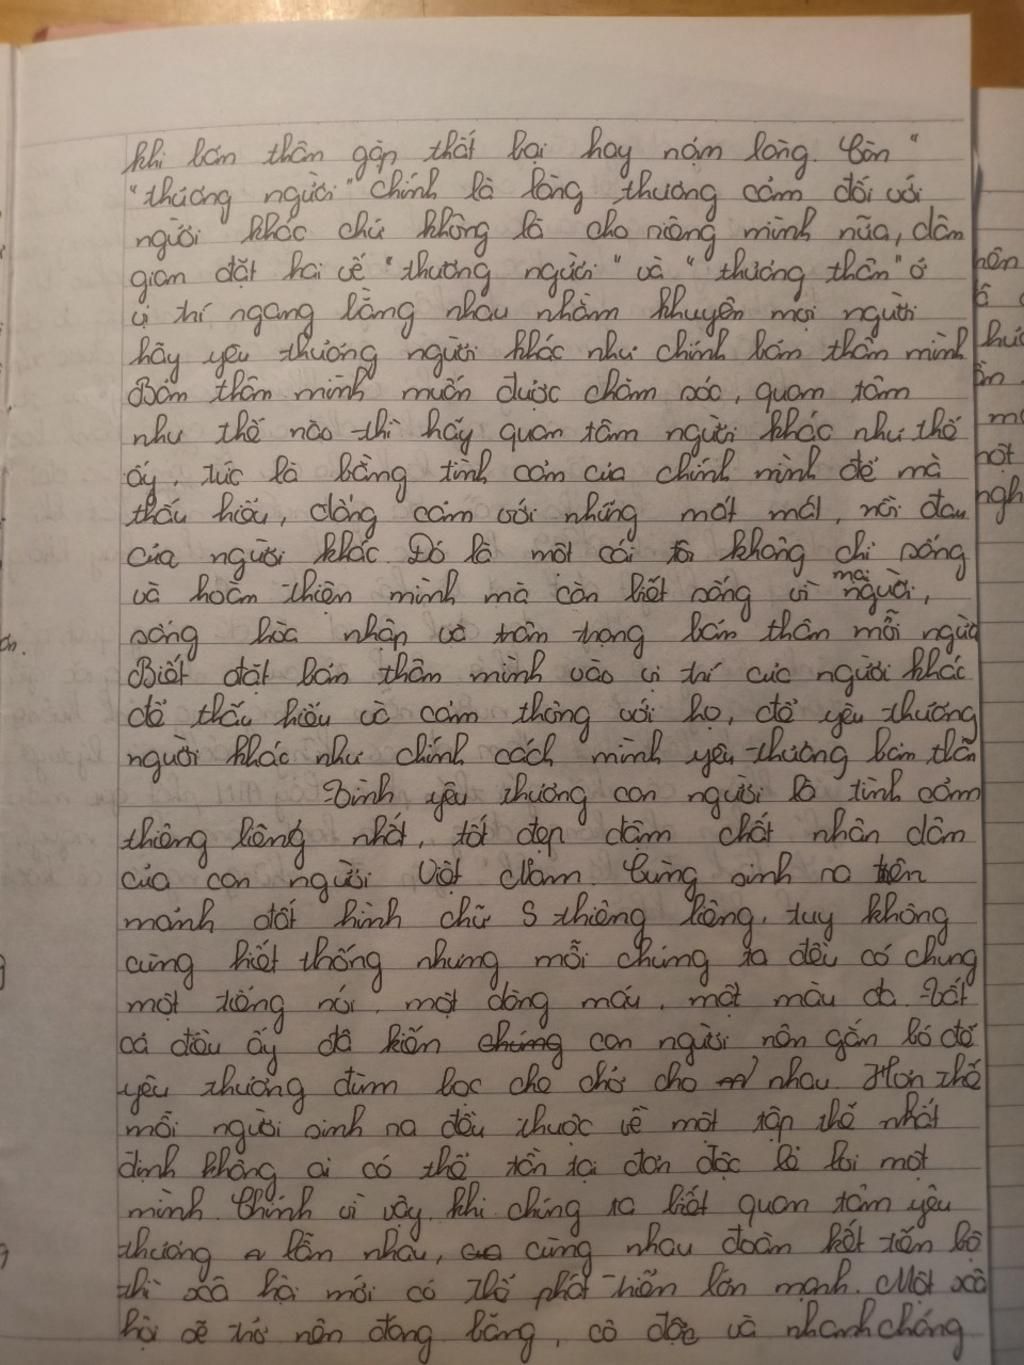 khi bản thân gặp thất bại hay nám lòng. Còn "
"thương người" chính là lòng thương cảm đối với
người khác chứ không là cho riêng mình nữa, dân
gian đặt hai vế "thương người" và "thương thân" ở
vị trí ngang bằng nhau nhằm khuyên mọi người
hãy yêu thương người khác như chính bản thân mình
Bản thân mình muốn được chăm sóc, quan tâm
như thế nào thì hãy quan tâm người khác như thế
ấy, tức là bằng tình cảm của chính mình để mà
thấu hiểu, đồng cảm với những mất mát, nỗi đau
của người khác. Đó là một cái tôi không chỉ sống
và hoàn thiện mình mà còn biết sống vì mọi người,
sống hòa nhập và trân trọng bản thân mỗi người
Biết đặt bản thân mình vào vị trí của người khác
để thấu hiểu và cảm thông với họ, để yêu thương
người khác như chính cách mình yêu thương bản thân
Tình yêu thương con người là tình cảm
thiêng liêng nhất, tốt đẹp đậm chất nhân dân
của con người Việt Nam. Cùng sinh ra trên
mảnh đất hình chữ S thiêng liêng, tuy không
cùng huyết thống nhưng mỗi chúng ta đều có chung
một tiếng nói, một dòng máu, một màu da. Tất
cả điều ấy đã khiến chúng con người nên gắn bó để
yêu thương đùm bọc che chở cho nhau. Hơn thế
mỗi người sinh ra đều thuộc về một tập thể nhất
định không ai có thể tồn tại đơn độc lẻ loi một
mình. Chính vì vậy, khi chúng ta biết quan tâm yêu
thương lẫn nhau, cùng nhau đoàn kết tiến bộ
thì xã hội mới có thể phát triển lớn mạnh. Một xã
hội sẽ trở nên đóng băng, cô độc và nhanh chóng